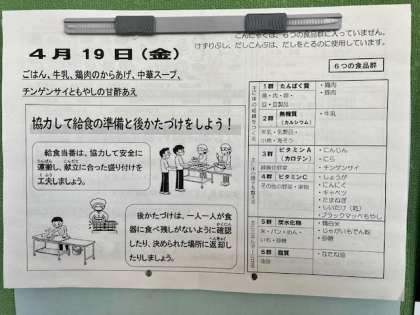 こんにゃくは、6つの食品群に入っていません。
けずりぶし、だしこんぶは、だしをとるのに使用しています。
4月19日(金)
ごはん、牛乳、鶏肉のからあげ、中華スープ、
チンゲンサイともやしの甘酢あえ
協力して給食の準備と後かたづけをしよう!
給食当番は、協力して安全に
運搬し、献立に合った盛り付けを
工夫しましょう。
後かたづけは、一人一人が食
器に食べ残しがないように確認
したり、決められた場所に返却し
たりしましょう。
6つの食品群
1群 たんぱく質
魚・肉・卵・
豆・豆製品
・鶏肉
・豚肉
2群 無機質
(カルシウム)
牛乳・乳製品・
小魚・海そう
・牛乳
3群 ビタミンA
(カロテン)
緑黄色野菜
・にんじん
・にら
・チンゲンサイ
4群 ビタミンC
その他の野菜・果物
・しょうが
・にんにく
・キャベツ
・たまねぎ
・しいたけ(乾)
・ブラックマッペもやし
5群 炭水化物
米・パン・めん・
いも・砂糖
・精白米
・じゃがいもでん粉
・砂糖
6群 脂質
油脂
・なたね油